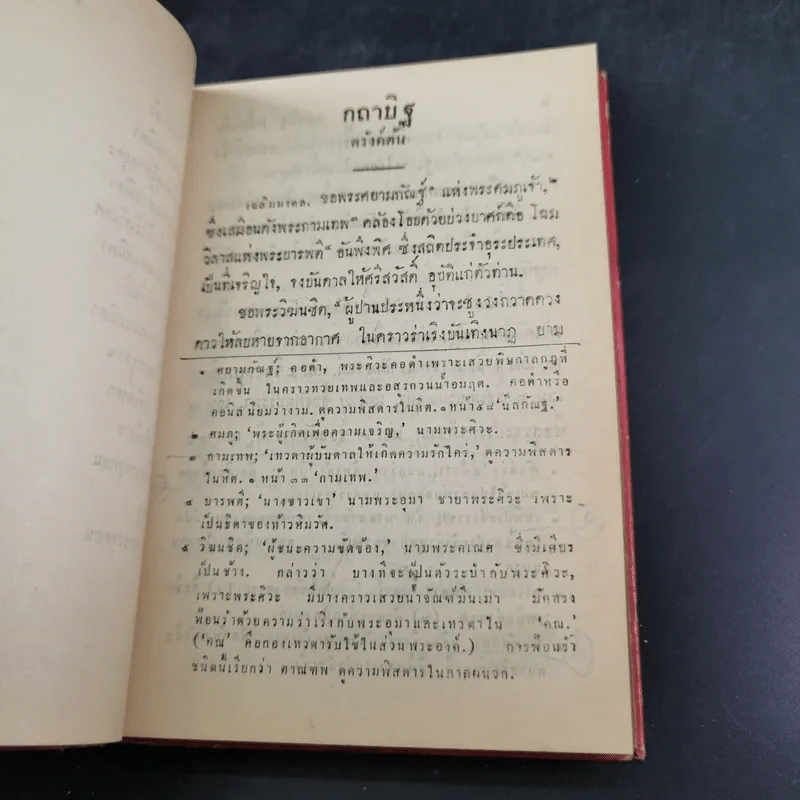 กถาบิฐ
ตรังค์ต้น
เฉลิมมงคล. ขอพระศยามกัณฐ์๑ แห่งพระศมภูเจ้า,๒
ซึ่งเสมือนดังพระกามเทพ๓ คล้องไว้ด้วยบ่วงบาศก์คือ โฉม
วิลาสแห่งพระบารพตี๔ อันพึงพิศ ซึ่งสถิตประจำอุระประเทศ,
เป็นที่เจริญใจ, จงบันดาลให้ศิริสวัสดิ์ อุบัติแก่ตัวท่าน.
ขอพระวิฆนชิต,๕ ผู้ปานประหนึ่งว่าจะชูงวงกวาดดวง
ดาวให้ลับหายจากอากาศ ในคราวร่าเริงบันเทิงนาฏ ยาม
๑ ศยามกัณฐ์; คอดำ, พระศิวะคอดำเพราะเสวยพิษกาลกูฏที่
เกิดขึ้น ในคราวทวยเทพและอสูรกวนน้ำอมฤต. คอดำหรือ
คอนิล นิยมว่างาม. ดูความพิสดารในหิต. ๑ หน้า ๕๘ 'นิลกัณฐ.'
๒ ศมภู; 'พระผู้เกิดเพื่อความเจริญ,' นามพระศิวะ.
๓ กามเทพ; 'เทวดาผู้บันดาลให้เกิดความรักใคร่,' ดูความพิสดาร
ในหิต. ๑ หน้า ๓๓ 'กามเทพ.'
๔ บารพตี; 'นางชาวเขา' นามพระอุมา ชายาพระศิวะ เพราะ
เป็นธิดาของท้าวหิมวัต.
๕ วิฆนชิต; 'ผู้ชนะความขัดข้อง,' นามพระคเณศ ซึ่งมีเศียร
เป็นช้าง. กล่าวว่า บางทีจะเป็นตัวระบำกับพระศิวะ,
เพราะพระศิวะ มีบางคราวเสวยน้ำจัณฑ์มึนเมา มักทรง
ฟ้อนรำด้วยความร่าเริงกับพระอุมาและเทวดาใน 'คณ.'
('คณ' คือกองเทวดารับใช้ในส่วนพระองค์.) การฟ้อนรำ
ชนิดนี้เรียกว่า ตาณฑพ ดูความพิสดารในภาคผนวก.